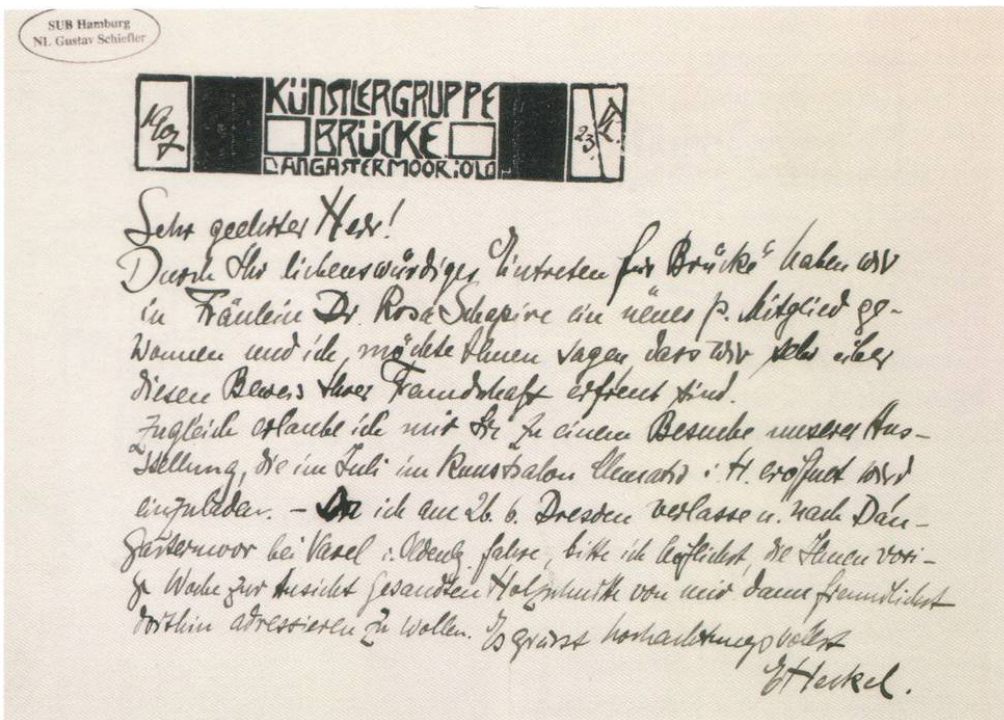 SUB Hamburg
NL Gustav Schiefler
1907
KÜNSTLERGRUPPE
BRÜCKE
DANGASTERMOOR i OLD
23. VI.
Sehr geehrter Herr!
Durch Ihr liebenswürdiges Eintreten für „Brücke“ haben wir
in Fräulein Dr. Rosa Schapire ein neues p. Mitglied ge-
wonnen und ich möchte Ihnen sagen dass wir sehr über
diesen Beweis Ihrer Freundschaft erfreut sind.
Zugleich erlaube ich mir Sie zu einem Besuche unserer Aus-
stellung, die im Juli im Kunstsalon Clematis i. H. eröffnet wird
einzuladen. – Da ich am 26. 6. Dresden verlasse u. nach Dan-
gastermoor bei Varel i. Oldenbg. fahre, bitte ich höflichst, die Ihnen vori-
ge Woche zur Ansicht gesandten Holzschnitte von mir dann freundlichst
dorthin adressieren zu wollen. Es grüsst hochachtungsvollst
EHeckel.